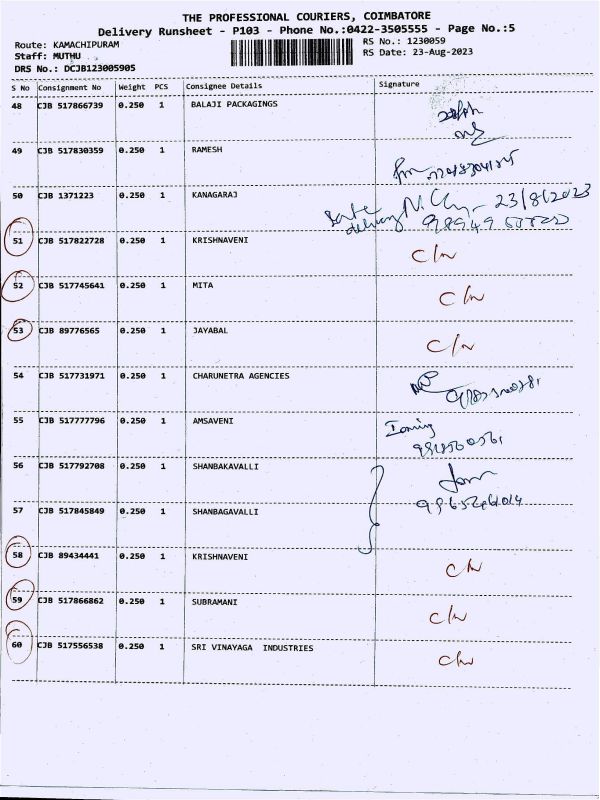 THE PROFESSIONAL COURIERS, COIMBATORE
Delivery Runsheet - P103 - Phone No.:0422-3505555 - Page No.:5
Route: KAMACHIPURAM
RS No.: 1230059
Staff: MUTHU
RS Date: 23-Aug-2023
DRS No.: DCJB123005905
S No Consignment No Weight PCS Consignee Details Signature
48 CJB 517866739 0.250 1 BALAJI PACKAGINGS
49 CJB 517830359 0.250 1 RAMESH
50 CJB 1371223 0.250 1 KANAGARAJ 23/8/2023
51 CJB 517822728 0.250 1 KRISHNAVENI C/N
52 CJB 517745641 0.250 1 MITA C/N
53 CJB 89776565 0.250 1 JAYABAL C/N
54 CJB 517731971 0.250 1 CHARUNETRA AGENCIES
55 CJB 517777796 0.250 1 AMSAVENI
56 CJB 517792708 0.250 1 SHANBAKAVALLI
57 CJB 517845849 0.250 1 SHANBAGAVALLI
58 CJB 89434441 0.250 1 KRISHNAVENI C/N
59 CJB 517866862 0.250 1 SUBRAMANI C/N
60 CJB 517556538 0.250 1 SRI VINAYAGA INDUSTRIES C/N